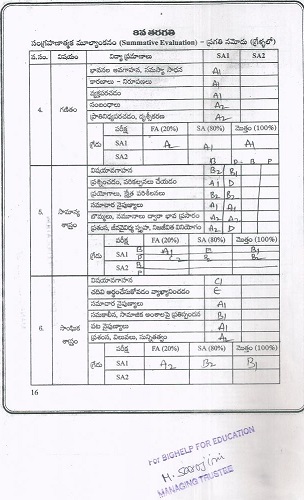 8వ తరగతి
సంగ్రహణాత్మక మూల్యాంకనం (Summative Evaluation) – ప్రగతి నమోదు (గ్రేడ్లలో)
వ.సం. విషయం విద్యా ప్రమాణాలు SA1 SA2
భావనల అవగాహన, సమస్యా సాధన A1
కారణాలు - నిరూపణలు A1
వ్యక్తపరచడం A1
4. గణితం సంబంధాలు A2
ప్రాతినిధ్యపరచడం, దృశ్యీకరణ A2
గ్రేడు పరీక్ష FA (20%) SA (80%) మొత్తం (100%)
SA1 A2 A1 A1
SA2
విషయావగాహన B2 B1
ప్రశ్నించడం, పరికల్పనలు చేయడం A1 D
ప్రయోగాలు, క్షేత్ర పరిశీలనలు B2 B1
5. సామాన్య శాస్త్రం సమాచార నైపుణ్యాలు A1 A1
బొమ్మలు, నమూనాల ద్వారా భావ ప్రసారం A2
A2 D
గ్రేడు పరీక్ష FA (20%) SA (80%) మొత్తం (100%)
SA1
SA2
విషయావగాహన C1
చదివి అర్థంచేసుకోవడం వ్యాఖ్యానించడం E
సమాచార నైపుణ్యాలు A1
6. సాంఘిక శాస్త్రం సమకాలీన, సామాజిక అంశాలపై ప్రతిస్పందన B1
పట నైపుణ్యాలు A1
ప్రశంస, విలువలు, సున్నితత్వం A2
గ్రేడు పరీక్ష FA (20%) SA (80%) మొత్తం (100%)
SA1 A2 B2 B1
SA2
16
For BIGHELP FOR EDUCATION
M. Sarojini
MANAGING TRUSTEE